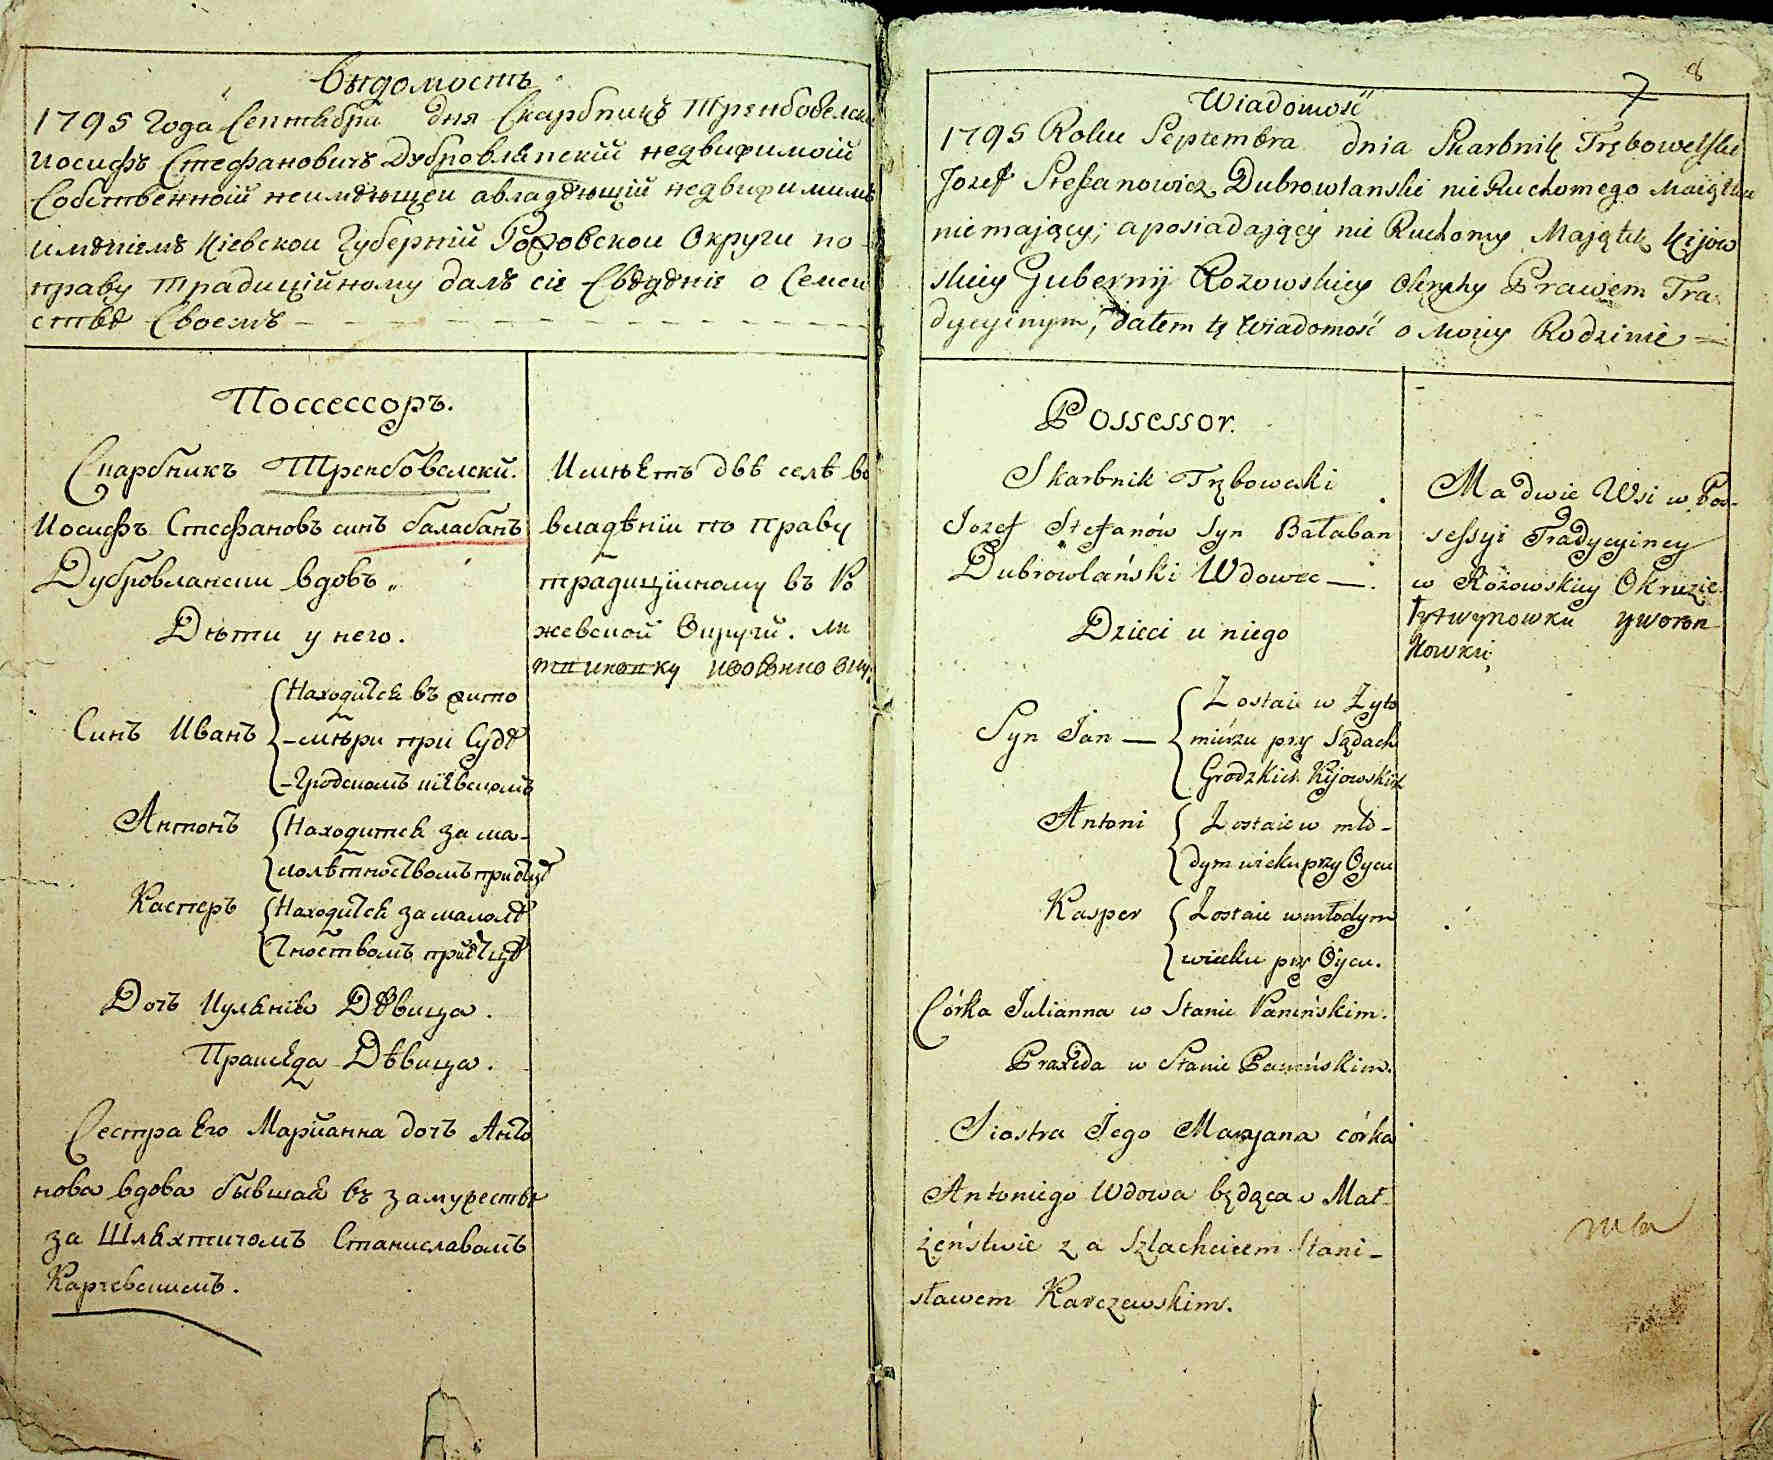 Вѣдомость
1795 Года Сентябрÿ дня Скарбникъ Трембовелски
Иосифъ Стефановичъ Дубровлянскій недвижимой
Собственной неимѣющей авладѣющій недвижимимъ
имѣніемъ Кіевской Губерній Рожовской Округи по
праву традиційному далъ сіе Свѣдѣніе о Семей
ствѣ Своемъ
Поссессоръ.
Скарбникъ Трембовелски.
Иосифъ Стефановъ синъ балабанъ
Дубровлански вдовъ
Дѣти у него.
Синъ Иванъ
Находится въ Жито
-мѣри при Судѣ
-Гродскомъ Кіевскомъ
Антонъ
Находится за ма-
лолѣтноствомъ при отцѣ
Касперъ
Находится за малолѣ
тноствомъ при отцѣ
Дочъ Иуліяна Дѣвица.
Праксѣда Дѣвица.
Сестра Его Маріанна дочъ Анто
нова вдова бывшая въ замужествѣ
за Шляхтичомъ Станиславомъ
Карчевскимъ.
Имѣетъ двѣ селѣ во
владѣніи по праву
традицийному въ Ро
жевской Округи. Ли
Wiadomość
7 8
1795 Roku Septembra dnia Skarbnik Trębowelski
Jozef Stefanowicz Dubrowlanski nie Ruchomego Maiątku
niemaiący; a posiadaiący nie Ruchomy Maiątek Kijow
skiey Gubernij Rożowskiey Okruhy Prawem Tra-
dycyinym, dałem tę Wiadomość o Moiey Rodzinie
Possessor.
Skarbnik Trębowelski
Jozef Stefanów Syn Bałaban
Dubrowlański Wdowec
Dzieci u niego
Syn Jan
Zostaie w Żyto
mirzu przy Sądach
Grodzkich Kijowskich
Antoni
Zostaie w mło-
dym wieku przy Oycu
Kasper
Zostaie w młodym
wieku przy Oycu.
Córka Julianna w Stanie Panińskim.
Praxeda w Stanie Panińskim.
Siostra Jego Maryana córka
Antoniego Wdowa będąca w Mał-
żeństwie za Szlachcicem Stani-
sławem Karczewskim.
Ma dwie Wsi w Pos-
sessyi Tradycyiney
w Rożowskiey Okruzie
Łytwynowku y woron
kowku